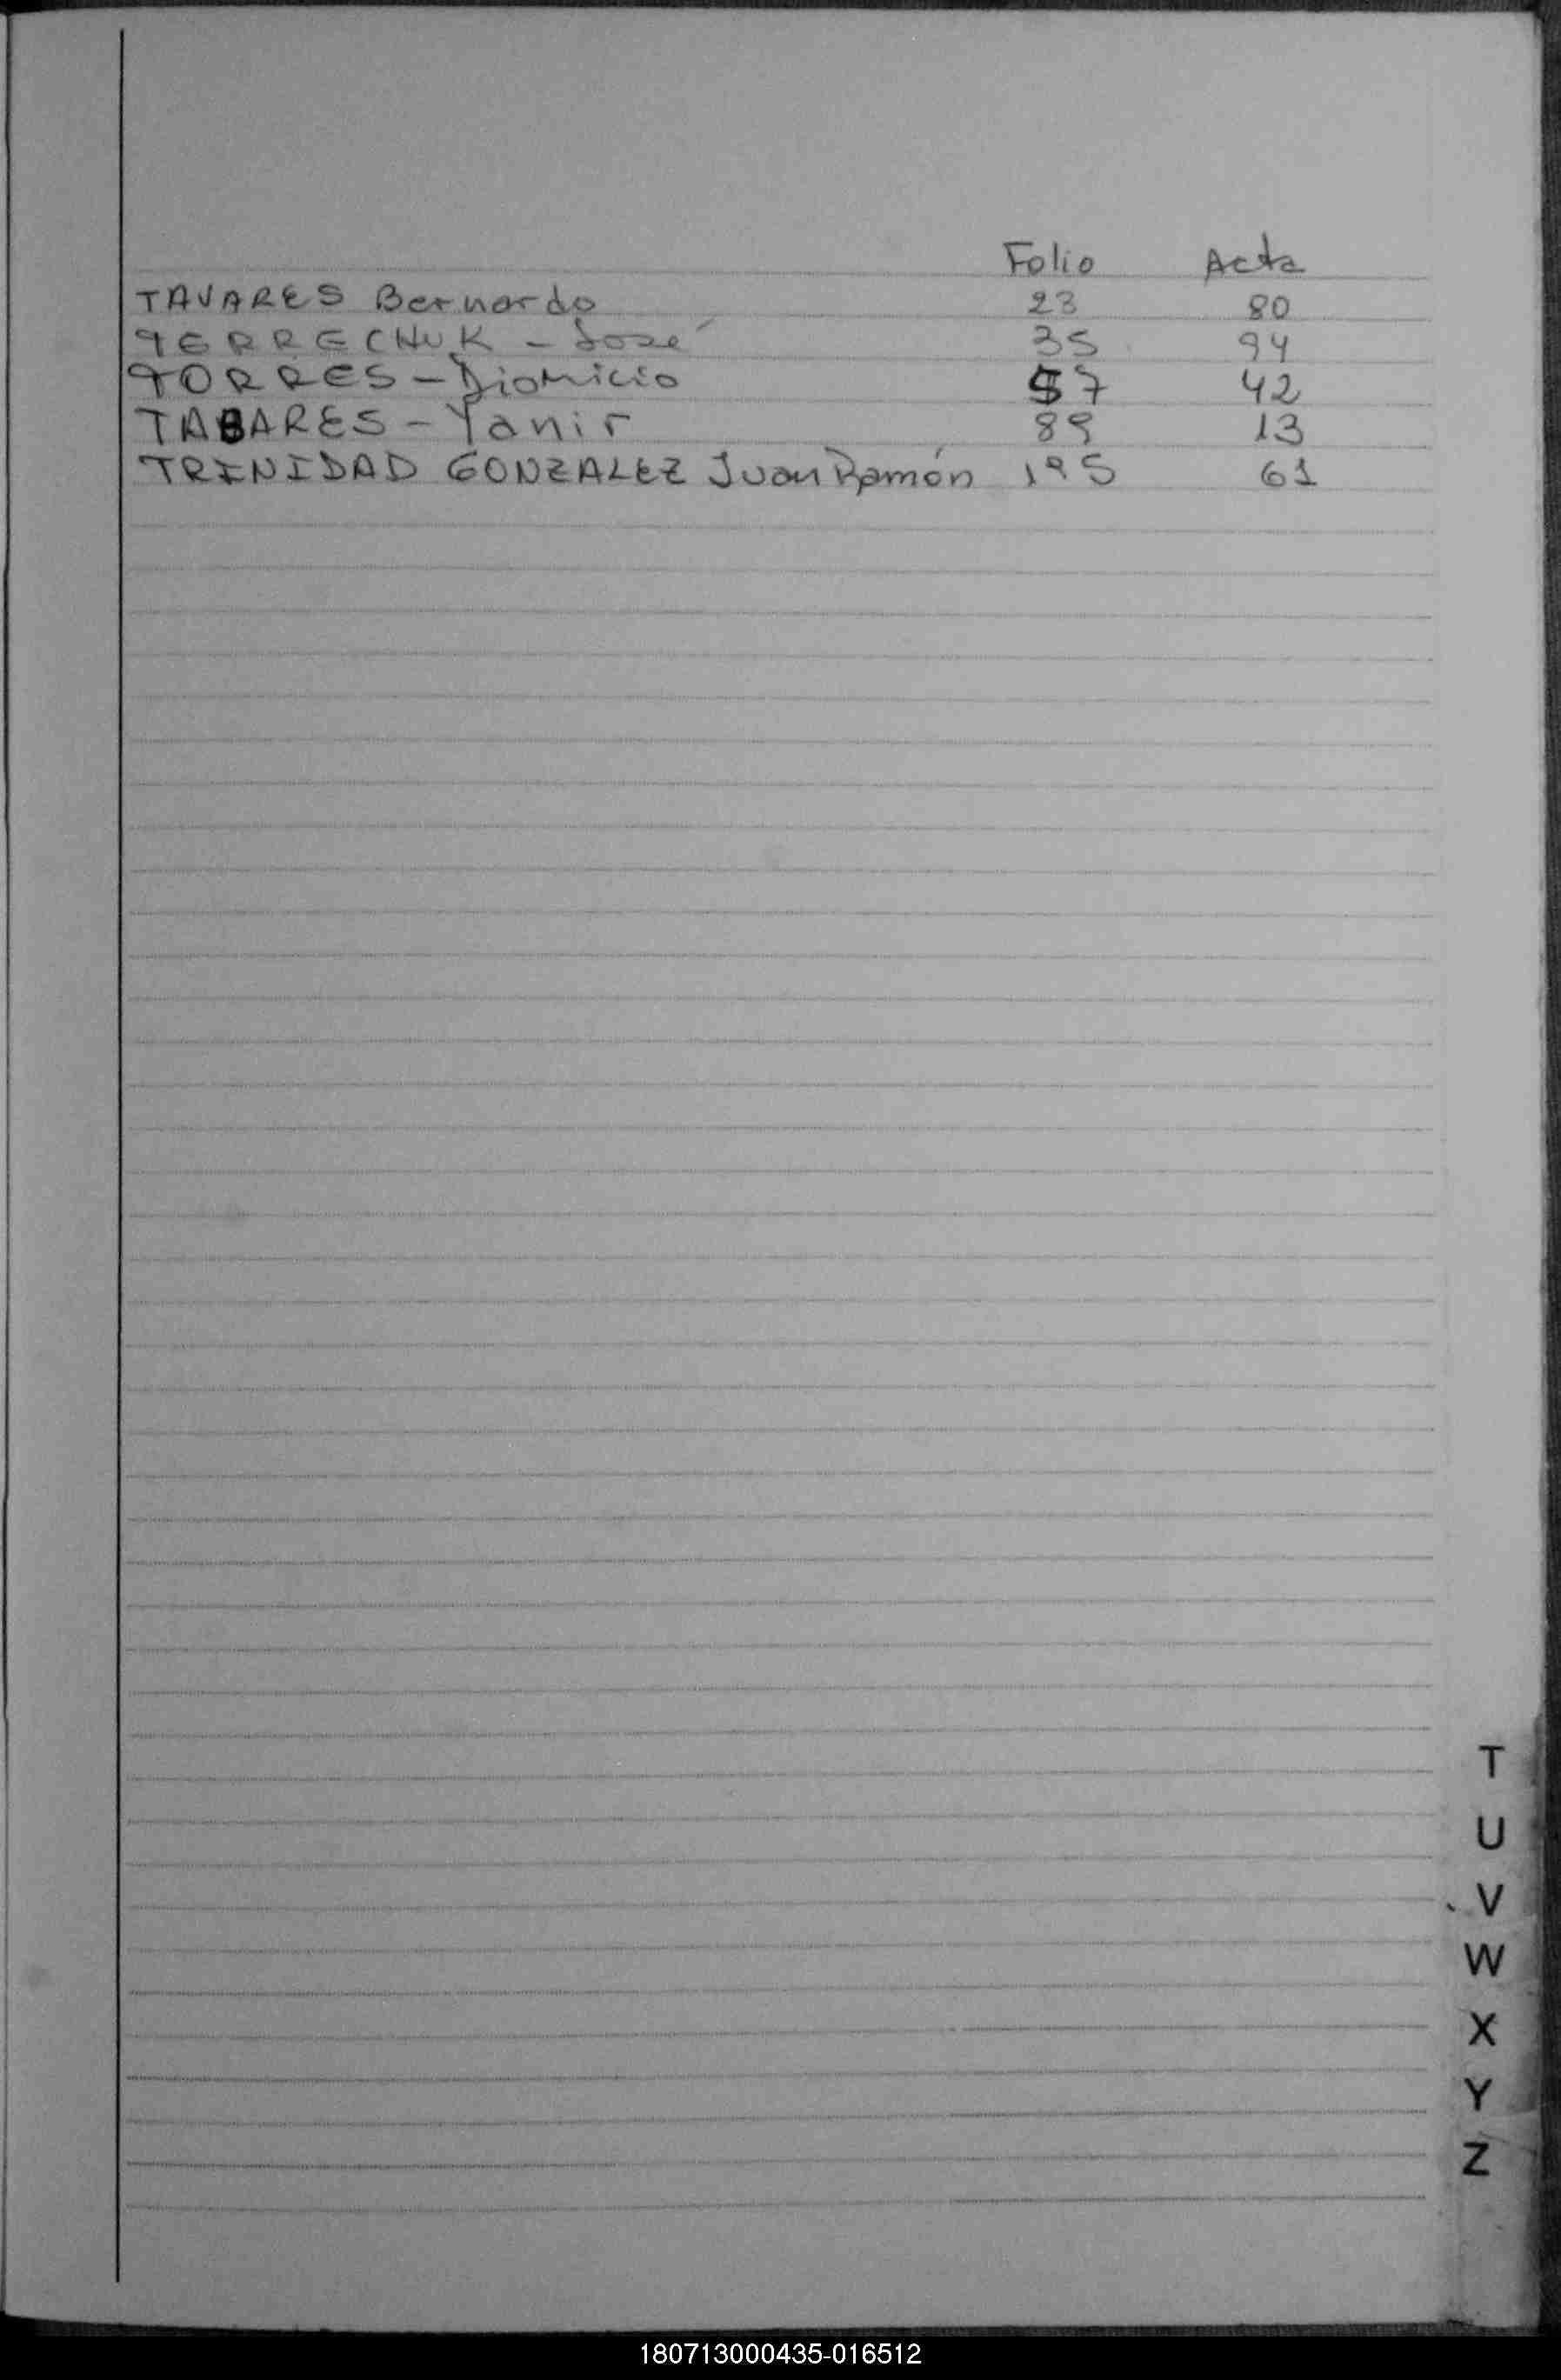 Folio Acta
TAVARES Bernardo 23 80
TERRECHUK - José 35 94
TORRES - Dionicio 57 42
TABARES - Yanir 89 13
TRINIDAD GONZALEZ Juan Ramón 195 61
T
U
V
W
X
Y
Z
180713000435-016512